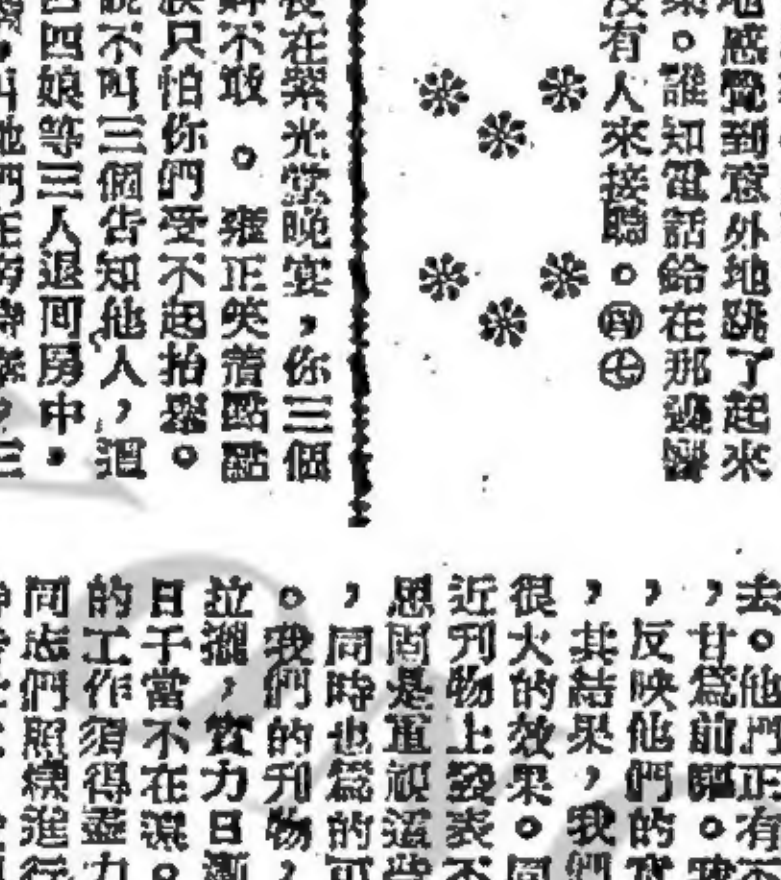 地感覺到意外地跳了起來
。誰知電話鈴在那邊響
沒有人來接聽。㊃㊆
在紫光堂晚宴，你三個
不敢。雍正笑着點點
只怕你們受不起抬舉。
不叫三個告知他人，這
四娘等三人退回房中。
去。他們正有
，甘爲前驅。
，反映他們的
，其結果，我們
很大的效果。同
近刊物上發表不
思同是重視這些
，同時也爲的可
。我們的刊物，
拉攏，實力日漸
日子當不在遠。
的工作須得盡力
同志們照樣進行